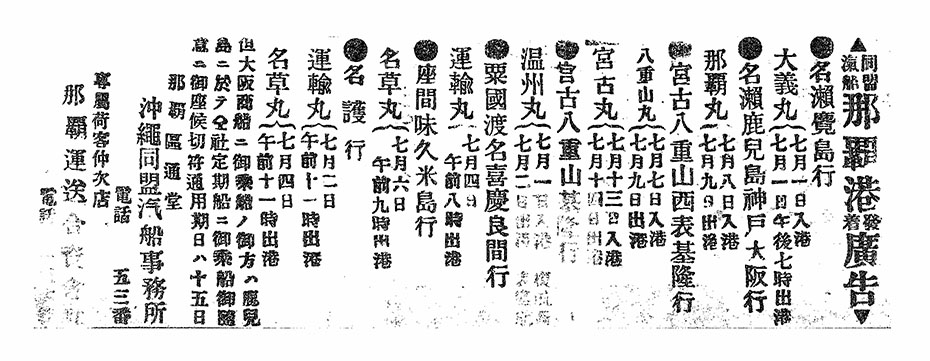 ▲同盟汽船那覇港發着廣告▼
●名瀬覽島行
大義丸(七月一日入港
七月一日午後七時出港
●名瀬鹿兒島神戸大阪行
那覇丸(七月八日入港
七月九日出港
●宮古八重山西表基隆行
八重山丸(七月七日入港
七月九日出港
宮古丸(七月十三日入港
七月十四日出港
●宮古八重山基隆行
温州丸(七月一
七月二
●粟國渡名喜慶良間行
運輸丸(七月四日
午前八時出港
●座間味久米島行
名草丸(七月六日
午前九時出港
●名護行
運輸丸(七月二日
午前十一時出港
名草丸(七月四日
午前十一時出港
但大阪商船ニ御乘船ノ御方ハ鹿兒
島ニ於テ仝社定期船ニ御乘船御隨
意ニ御座候切符通用期日ハ十五日
那覇區通堂
沖繩同盟汽船事務所
電話 五三番
專屬荷客仲次店
那覇運送合資會社
電話